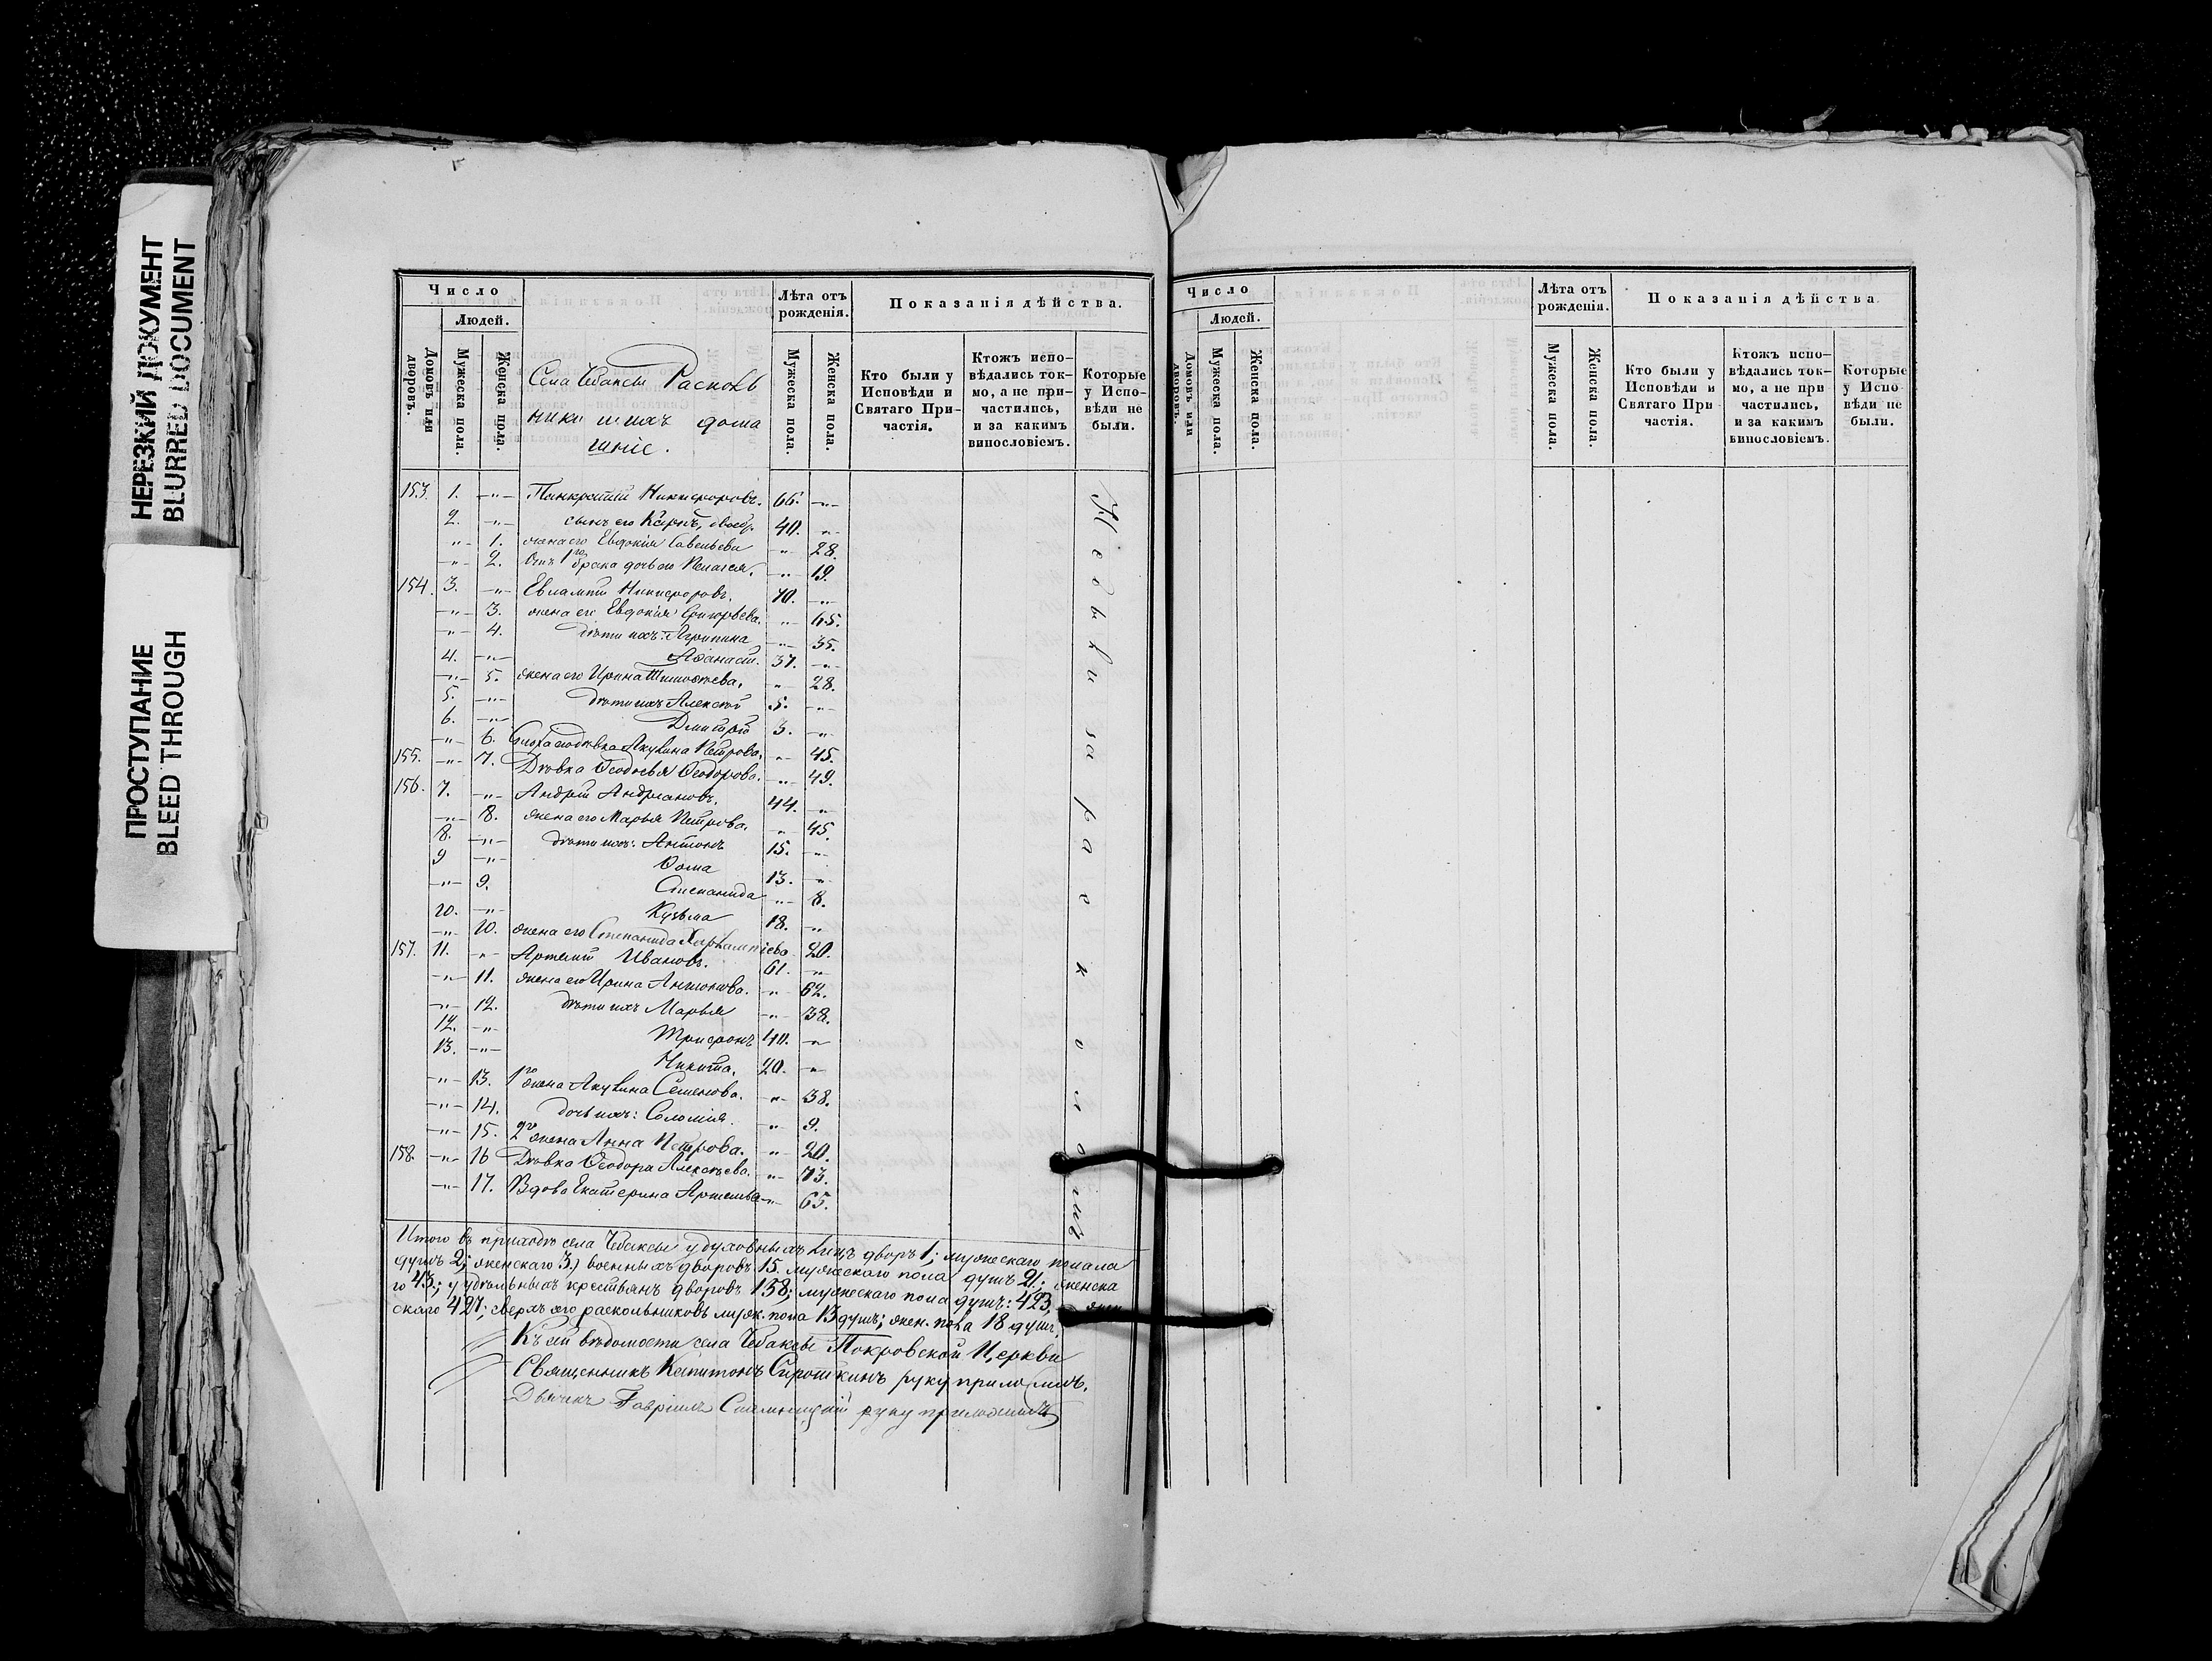 НЕРЕЗКИЙ ДОКУМЕНТ
BLURRED DOCUMENT
ПРОСТУПАНИЕ
BLEED THROUGH
Число
Людей.
Домовъ или дворовъ.
Мужеска пола.
Женска пола.
Села Чебаксы Расколь
ники и ихъ дома
шніе.
Лѣта отъ рожденія.
Мужеска пола.
Женска пола.
Показанія дѣйства.
Кто были у Исповѣди и Святаго Причастія.
Ктожъ испо-вѣдались ток-мо, а не при-частились, и за какимъ винословіемъ.
Которые у Испо-вѣди не были.
153. 1. -"- Панкратій Никифоровъ. 66. -"-
2. -"- сынъ его Карпъ, 40. -"-
-"- 1. жена его Евдокія Савельева -"- 28.
-"- 2. Отъ 1го брака дочь его Пелагея. -"- 19.
154. 3. -"- Евлампій Никифоровъ. 70. -"-
-"- 3. жена его Евдокія Григорьева. -"- 65.
-"- 4. дѣти ихъ: Агрипина -"- 35.
4. -"- Аѳанасій. 37. -"-
-"- 5. жена его Ирина Тимоѳеева. -"- 28.
5. -"- дѣти ихъ Алексѣй 5. -"-
6. -"- Дмитрій 3. -"-
-"- 6. Акулина Петрова. -"- 45.
155. -"- 7. Дѣвка Ѳедосья Ѳеодорова. -"- 49.
156. 7. -"- Андрей Андреяновъ. 44. -"-
-"- 8. жена его Марья Петрова. -"- 45.
8. -"- дѣти ихъ: Антонъ 15. -"-
9 -"- Ѳома 13. -"-
-"- 9. Степанида -"- 8.
10. -"- Кузьма 18. -"-
-"- 10. жена его Степанида Харлампіева 20.
157. 11. -"- Артемій Ивановъ. 61. -"-
-"- 11. жена его Ирина Антонова. -"- 62.
-"- 12. дѣти ихъ Марья -"- 38.
12. -"- Трифонъ 40. -"-
13. -"- Никита. 20. -"-
-"- 13. 1го жена Акулина Семенова. -"- 38.
-"- 14. дочь ихъ: Соломія. -"- 9.
-"- 15. 2го жена Анна Петрова. -"- 20.
158. -"- 16 Дѣвка Ѳеодора Алексѣева. -"- 73.
-"- 17. Вдова Екатерина Артемьева -"- 65.
Не были за расколомъ
Итого въ приходѣ села Чебаксы у духовныхъ лицъ дворъ 1; мужескаго пола
душъ 2; женскаго 3.) военныхъ дворовъ 15. мужескаго пола душъ 21; женска
го 43.; у удѣльныхъ крестьянъ дворовъ 158; мужескаго пола душъ: 423, жен
скаго 427; сверхъ его раскольниковъ муж. пола 13 душъ; жен. пола 18 душъ.
Къ сей вѣдомости села Чебаксы Покровской Церкви
Священникъ Капитонъ Сироткинъ руку приложилъ.
Дьячекъ Гавріилъ руку приложилъ
Число
Людей.
Домовъ или дворовъ.
Мужеска пола.
Женска пола.
Лѣта отъ рожденія.
Мужеска пола.
Женска пола.
Показанія дѣйства.
Кто были у Исповѣди и Святаго При частія.
Ктожъ испо-вѣдались ток-мо, а не при частились, и за какимъ винословіемъ.
Которые у Испо-вѣди не были.